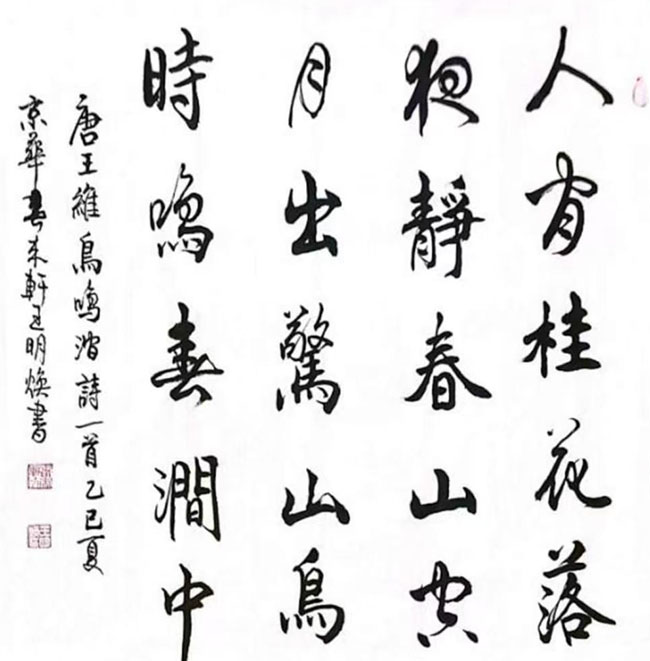 人閒桂花落
夜靜春山空
月出驚山鳥
時鳴春澗中
唐王維鳥鳴澗詩一首乙巳夏
京華春軒王明煥書